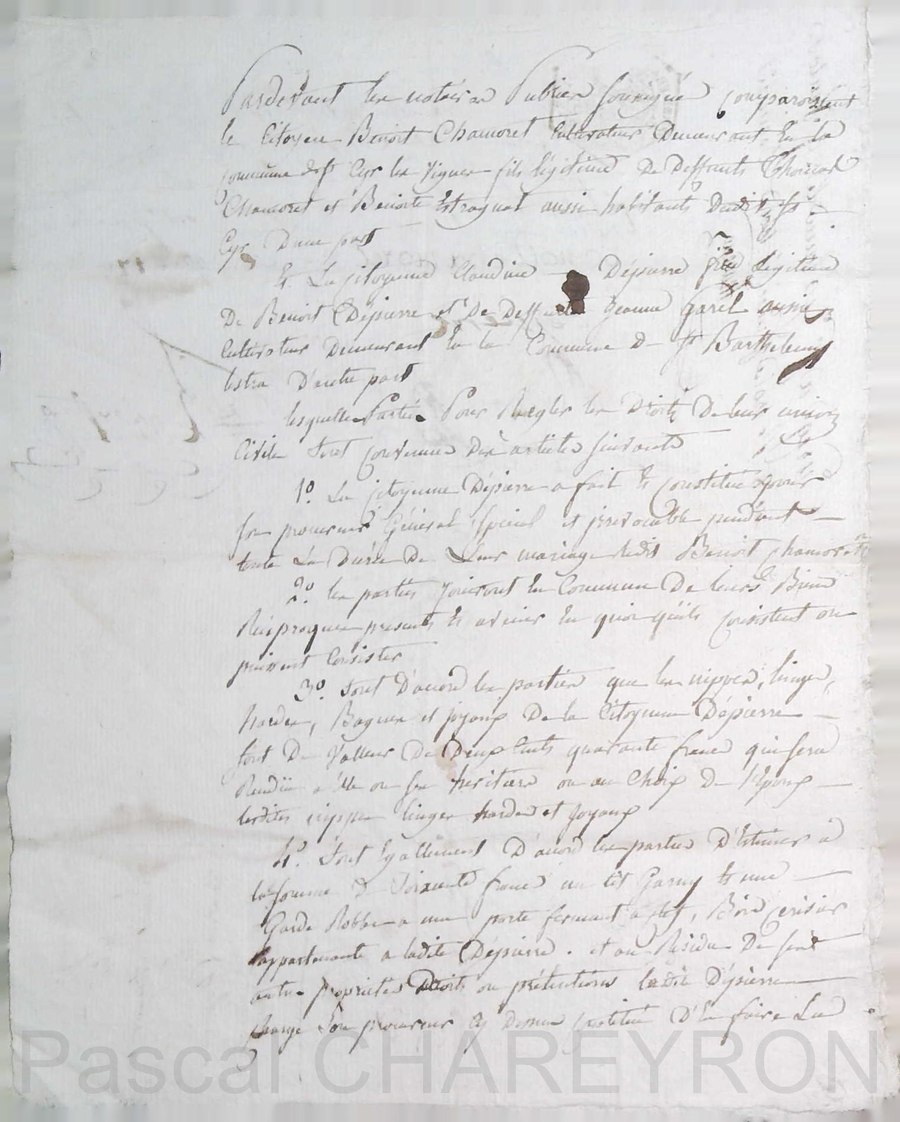 Pardevant les notaires Publics soussigné comparoissent
le Citoyen Benoit Chamoret Cultivateur Demeurant En la
commune de St Cyr les Vignes fils légitime De Deffunts Thoimas
Chamoret et Benoite Estragnat aussi habitants Dudit St
Cyr D'une part
Et La citoyenne Claudine Dépierre fille Legitime
De Benoit Dépierre et De Deffunte Jeanne garel aussi
Cultivateur Demeurant En la Commune de St Barthelemy
lestra D'autre part
lesquelles Parties Pour Regler les Droits De leur union
Civile Sont Convenues Des articles suivants
1o. La Citoyenne Dépierre a fait Et Constitue pour
son procureur Général spécial et irrevocable pendant
toute La Durée De Leur mariage ledit Benoit Chamoret
2o. les parties Jouiront En Commun De leurs Biens
Réciproques presents Et avenir En quoi qu'ils Consistent ou
puissent Consister
3o. Sont D'accord les parties que les nippes, linges,
hardes, Bagues et joyaux De la Citoyenne Dépierre
sont De Valleur De Deux Cents quarante francs qui sera
Rendüe a Elle ou ses heritiers ou au Choix De l'Epoux
lesdites nippes linges hardes et joyaux
4o. Sont Egallement D'accord les parties D'Estimer à
la somme De Soixante francs un lit Garny Et une
Garde Robbe a une porte fermant a clef, Bois Cerisier
appartenante a ladite Dépierre. et au Residu De ses
autres Propriétés Droits ou prétentions ladite Dépierre
charge son procureur Cy Dessus Constitué D'En faire La
Pascal CHAREYRON